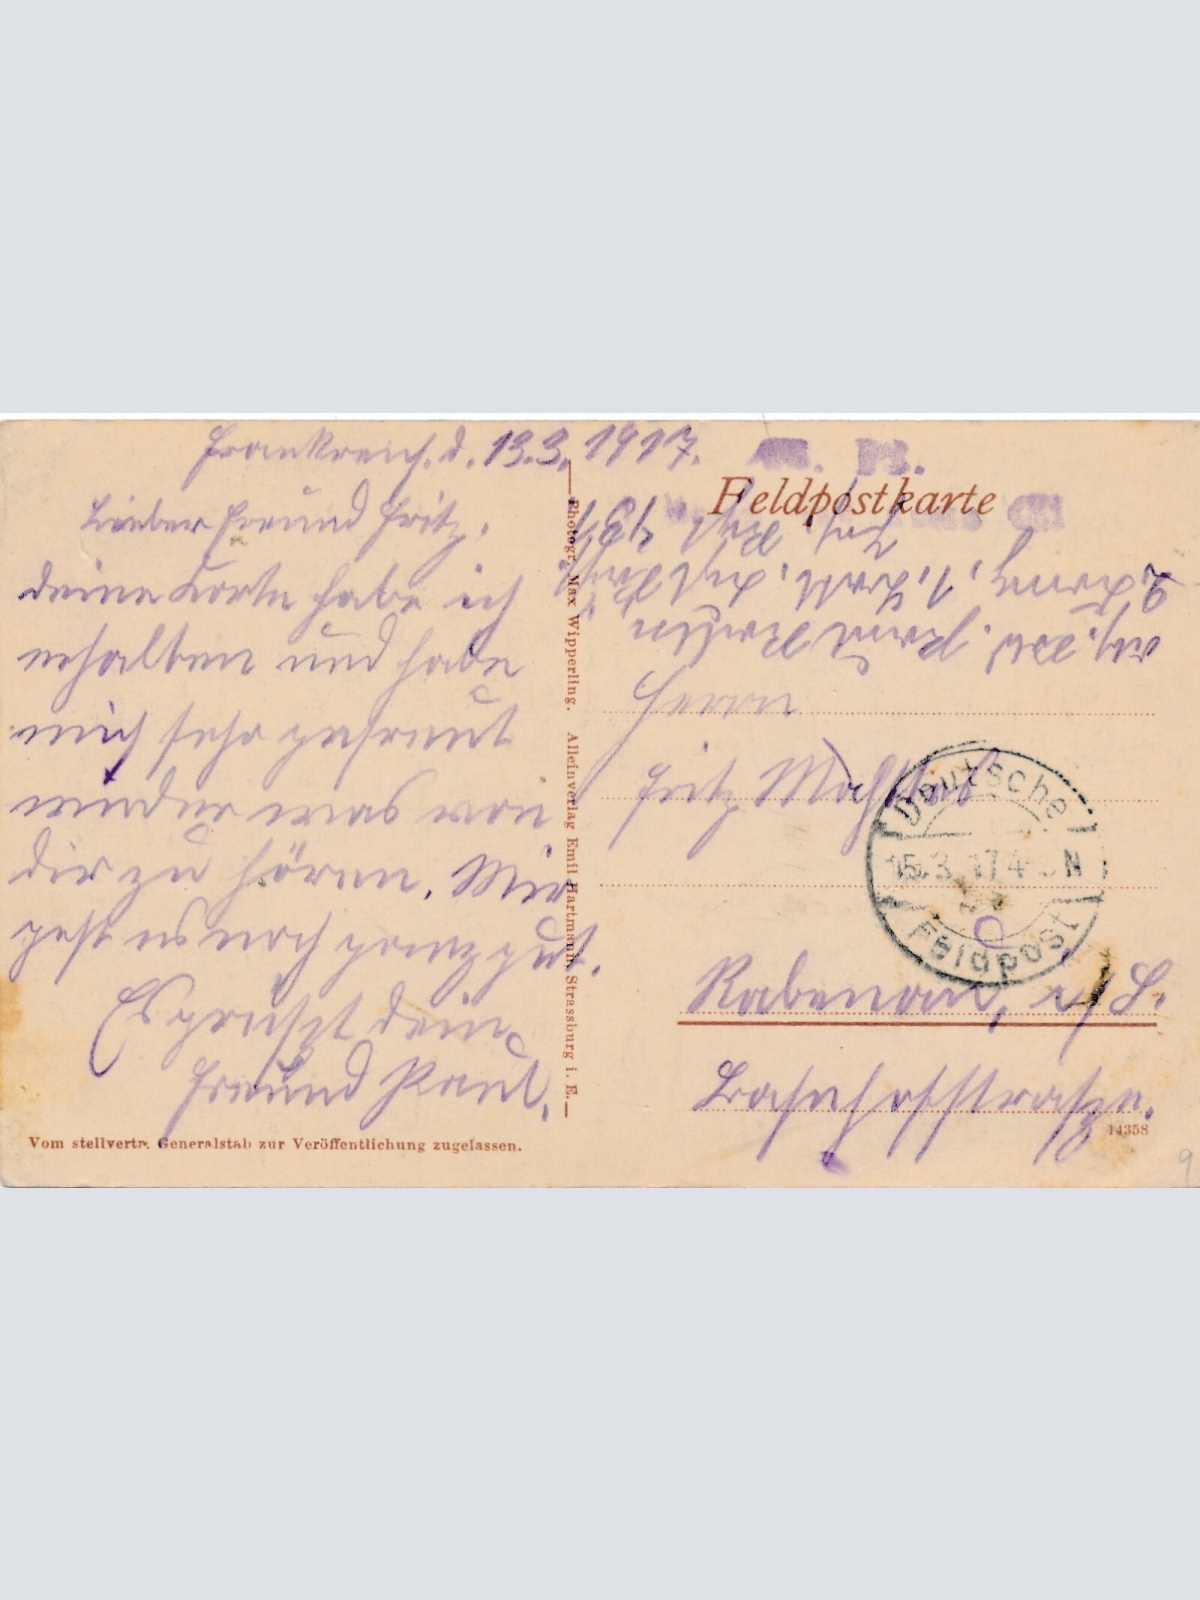 Frankreich. d. 13.3.1917.
Lieber Freund Fritz.
deine Karte habe ich
erhalten und habe
mich sehr gefreut
wieder was von
dir zu hören. Mir
geht es noch ganz gut.
Es grüßt dein
Freund Paul.
Vom stellvertr. Generalstab zur Veröffentlichung zugelassen.
Photogr. Max Wipperling. Alleinverlag Emil Hartmann, Strassburg i. E.
Feldpostkarte
Herrn
Fritz
Deutsche
15.3.17 4- N
Feldpost
Rabenau, i/S.
Bahnhofstraße.
14358
9